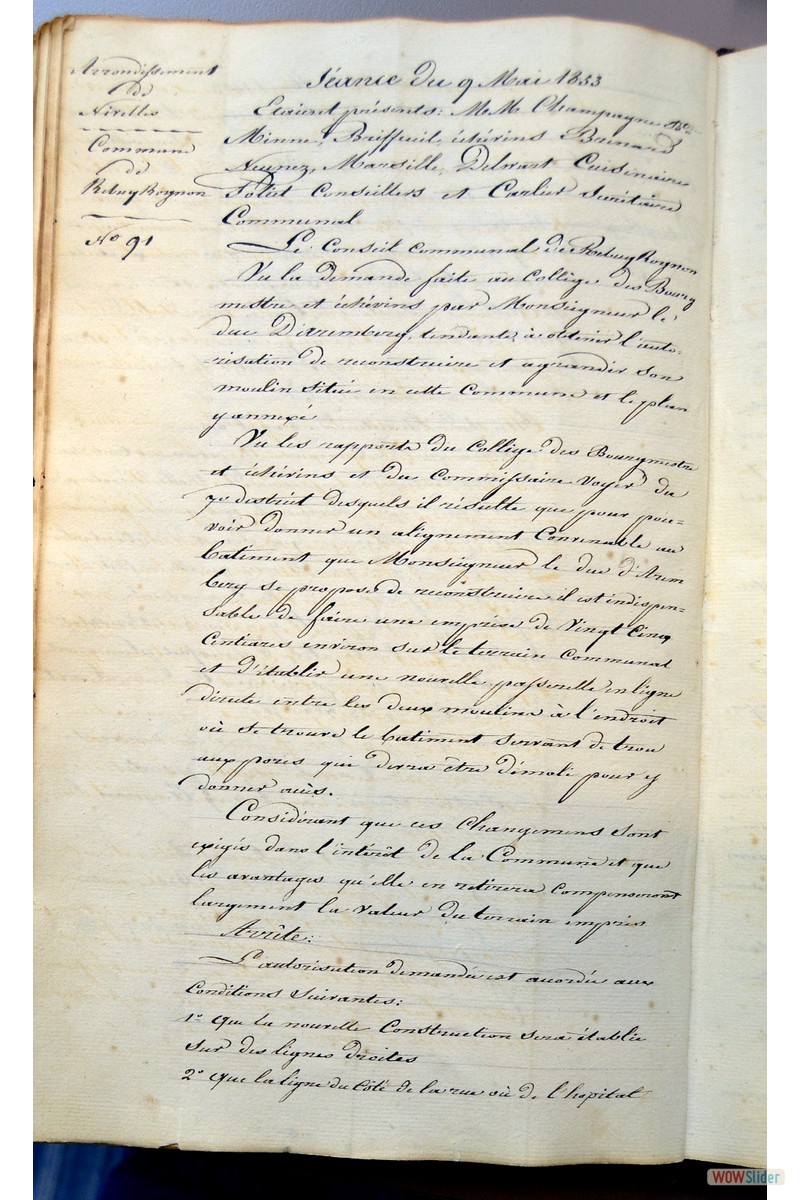 Arrondissement
de
Nivelles
Commune
de
Rebecq Rognon
N° 91
Séance du 9 Mai 1853
Etaient présents: M.M. Champagne
Minne, Briffeuil, échévins Brenard
Neunez, Marsille, Delwart Cuisinaire
Foliet Conseillers et Carlier secrétaire
Communal
Le Conseil communal de Rebecq Rognon
Vu la demande faite au Collège des Bourg
mestre et échévins par Monseigneur le
duc D'aremberg, tendante à obtenir l'auto-
risation de reconstruire et agrandir son
moulin situé en cette Commune et le plan
y annexé
Vu les rapports du Collège des Bourgmestre
et échévins et du Commissaire Voyer du
7e district desquels il résulte que pour pou-
voir donner un alignement Convenable au
batiment que Monseigneur le duc d'Arem
berg se propose de reconstruire il est indispen-
sable de faire une emprise de Vingt Cinq
Centiares environ sur le terrain Communal
et d'établir une nouvelle passerelle en ligne
directe entre les deux moulins à l'endroit
où se trouve le batiment servant de trou
aux porcs qui devra être démoli pour y
donner accès.
Considérant que ces Changemens sont
exigés dans l'intérêt de la Commune et que
les avantages qu'elle en retirera Compenseront
largement la valeur du terrain empris
Arrête:
L'autorisation demandée est accordée aux
Conditions suivantes:
1° que la nouvelle Construction sera établie
sur des lignes droites
2° que la ligne du Côté de la rue où de l'hopital
WOWSlider